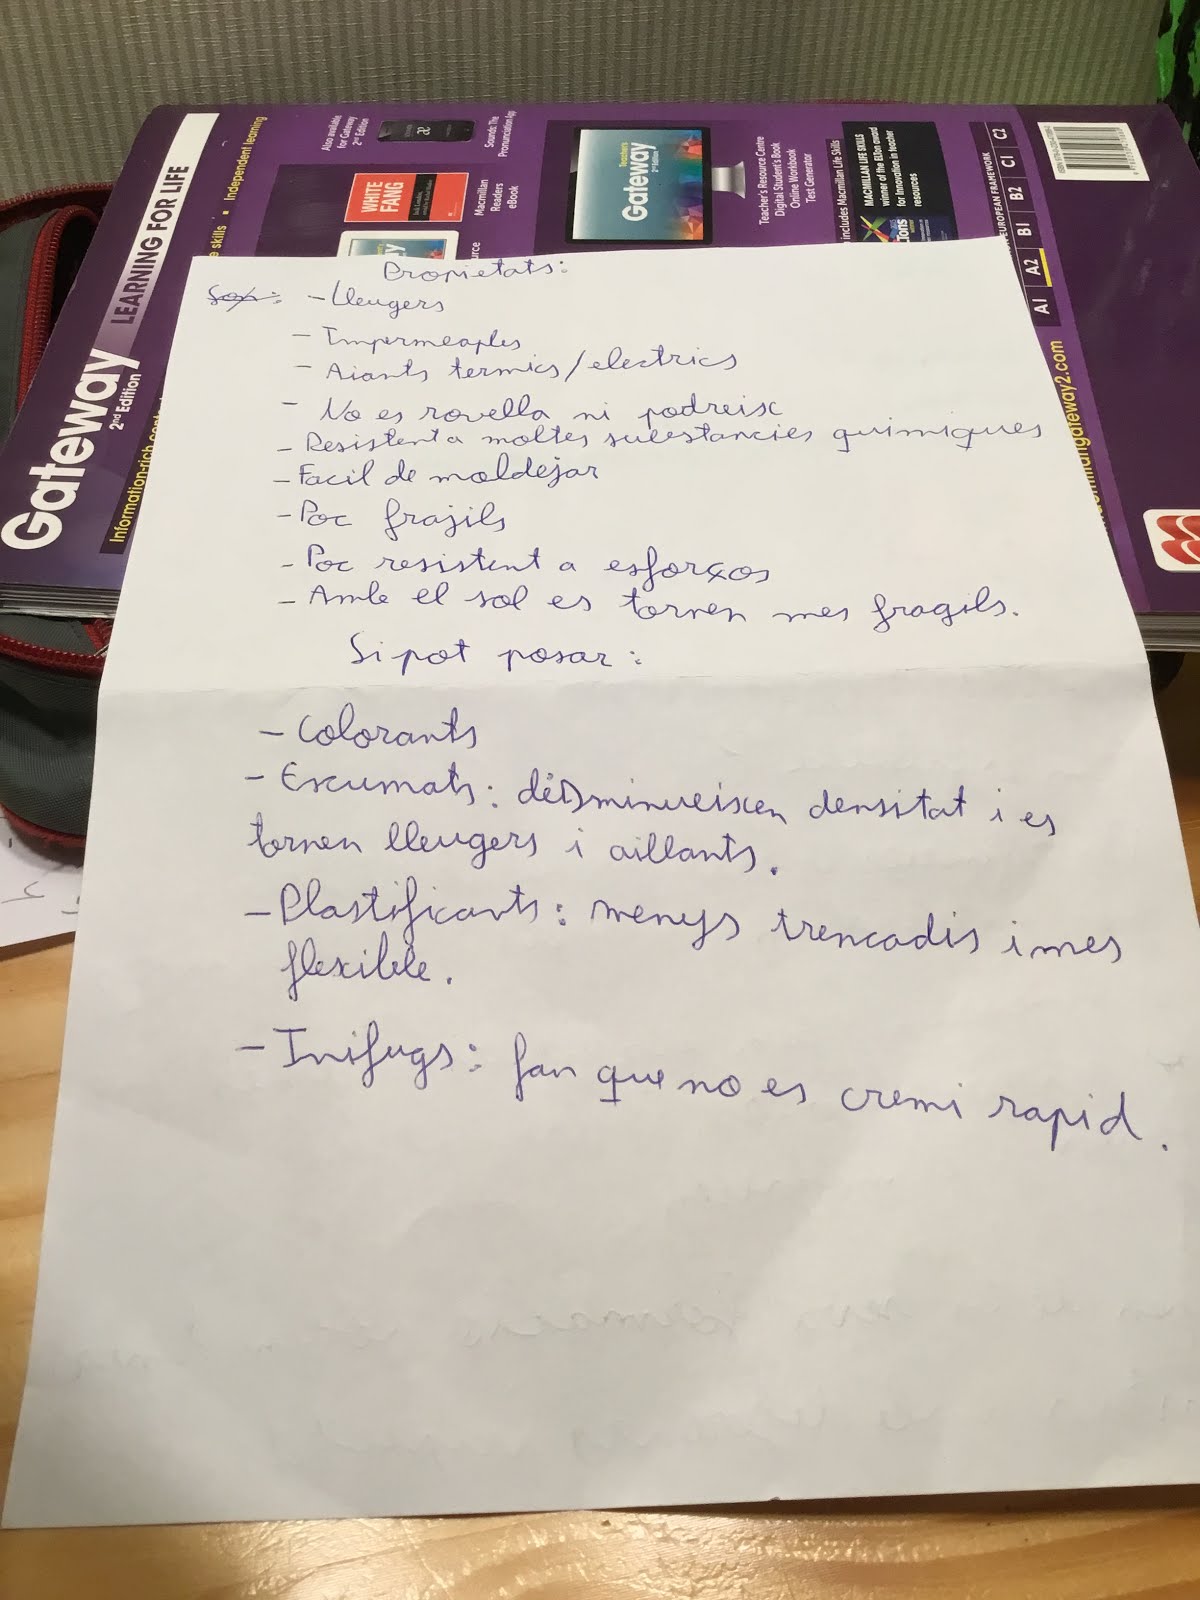 Propietats:
Són: - Lleugers
- Impermeaples
- Aiants termics/electrics
- No es rovella ni podreisc
- Resistent a moltes sucstancies quimiques
- Facil de moldejar
- Poc frajils
- Poc resistent a esforços
- Amb el sol es tornen mes fragils.
Si pot posar:
- Colorants
- Escumats: disminueixen densitat i es
tornen lleugers i aillants.
- Plastificants: menys trencadis i mes
flexible.
- Inifugs: fan que no es cremi rapid.
Gateway
2nd Edition
LEARNING FOR LIFE
Independent learning
Also available
for Gateway
2nd Edition
Sounds: The
Pronunciation App
WHITE
FANG
Macmillan
Readers
eBook
Teacher's
Gateway
2nd Edition
Teacher's Resource Centre
Digital Student's Book
Online Workbook
Test Generator
includes Macmillan Life Skills
MACMILLAN LIFE SKILLS
winner of the ELTon award
for Innovation in teacher
resources
EUROPEAN FRAMEWORK
A1 A2 B1 B2 C1 C2
macmillangateway2.com